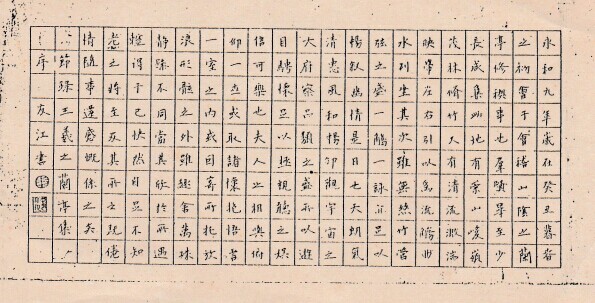 永和九年歲在癸丑暮春
之初會于會稽山陰之蘭
亭修禊事也群賢畢至少
長咸集此地有崇山峻嶺
茂林脩竹又有清流激湍
映帶左右引以為流觴曲
水列坐其次雖無絲竹管
弦之盛一觴一詠亦足以
暢敘幽情是日也天朗氣
清惠風和暢仰觀宇宙之
大俯察品類之盛所以遊
目騁懷足以極視聽之娛
信可樂也夫人之相與俯
仰一世或取諸懷抱悟言
一室之內或因寄所托放
浪形骸之外雖趣舍萬殊
靜躁不同當其欣於所遇
暫得於己快然自足不知
老之將至及其所之既倦
情隨事遷感慨係之矣
節錄王羲之蘭亭集
序 友江書